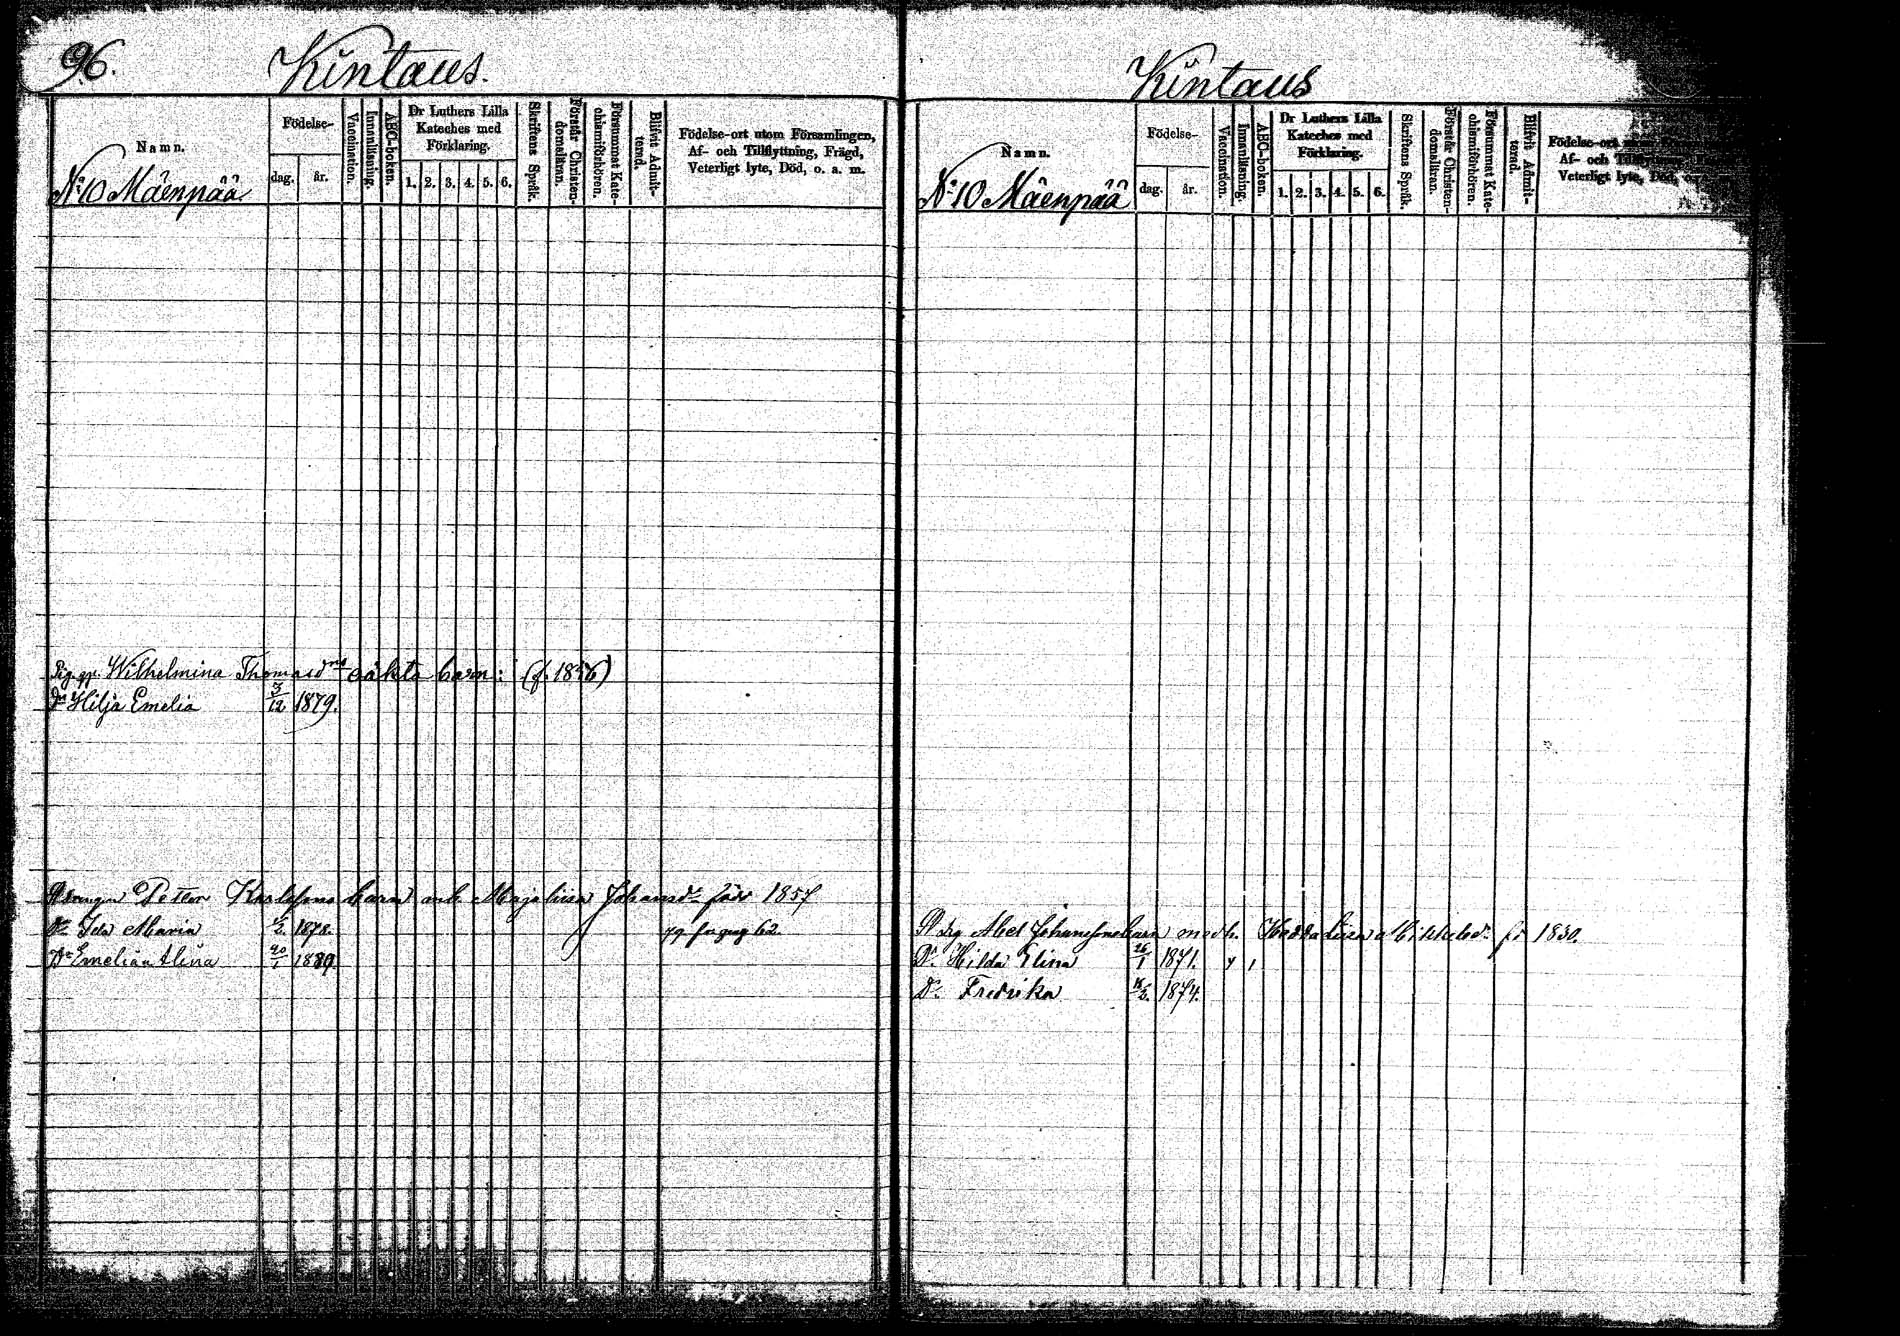 96.
Kintaus.
Namn.
Födelse-
dag. år.
Vaccination.
Innanläsning.
ABC-boken.
Dr Luthers Lilla Kateches med Förklaring.
1. 2. 3. 4. 5. 6.
Skriftens Språk.
Förstår Christen-domsläran.
Försummat Kate-chismiförhören.
Blifvit Admit-terad.
Födelse-ort utom Församlingen,
Af- och Tillflyttning, Frägd,
Veterligt lyte, Död, o. a. m.
No 10 Mäenpää
Wilhelmina Thomasdrs oäkta barn: (f. 1856)
Dr Hilja Emelia 3/12 1879.
Drängen Petter Karlssons barn m. h. Maja Lisa Johansdr född 1857
Dr Ida Maria 1878. 79 pag 62.
Dr Emelia Alina 20/1 1880
Kintaus
Namn.
Födelse-
dag. år.
Vaccination.
Innanläsning.
ABC-boken.
Dr Luthers Lilla Kateches med Förklaring.
1. 2. 3. 4. 5. 6.
Skriftens Språk.
Förstår Christen-domsläran.
Försummat Kate-chismiförhören.
Blifvit Admit-terad.
Födelse-ort
Af- och
Veterligt lyte, Död,
No 10 Mäenpää
Abel Johanssons barn m. h. Hedda Lisa Mikkelsdr 1830.
Dr. Hilda Elina 26/1 1871.
Dr. Fredrika 1874.